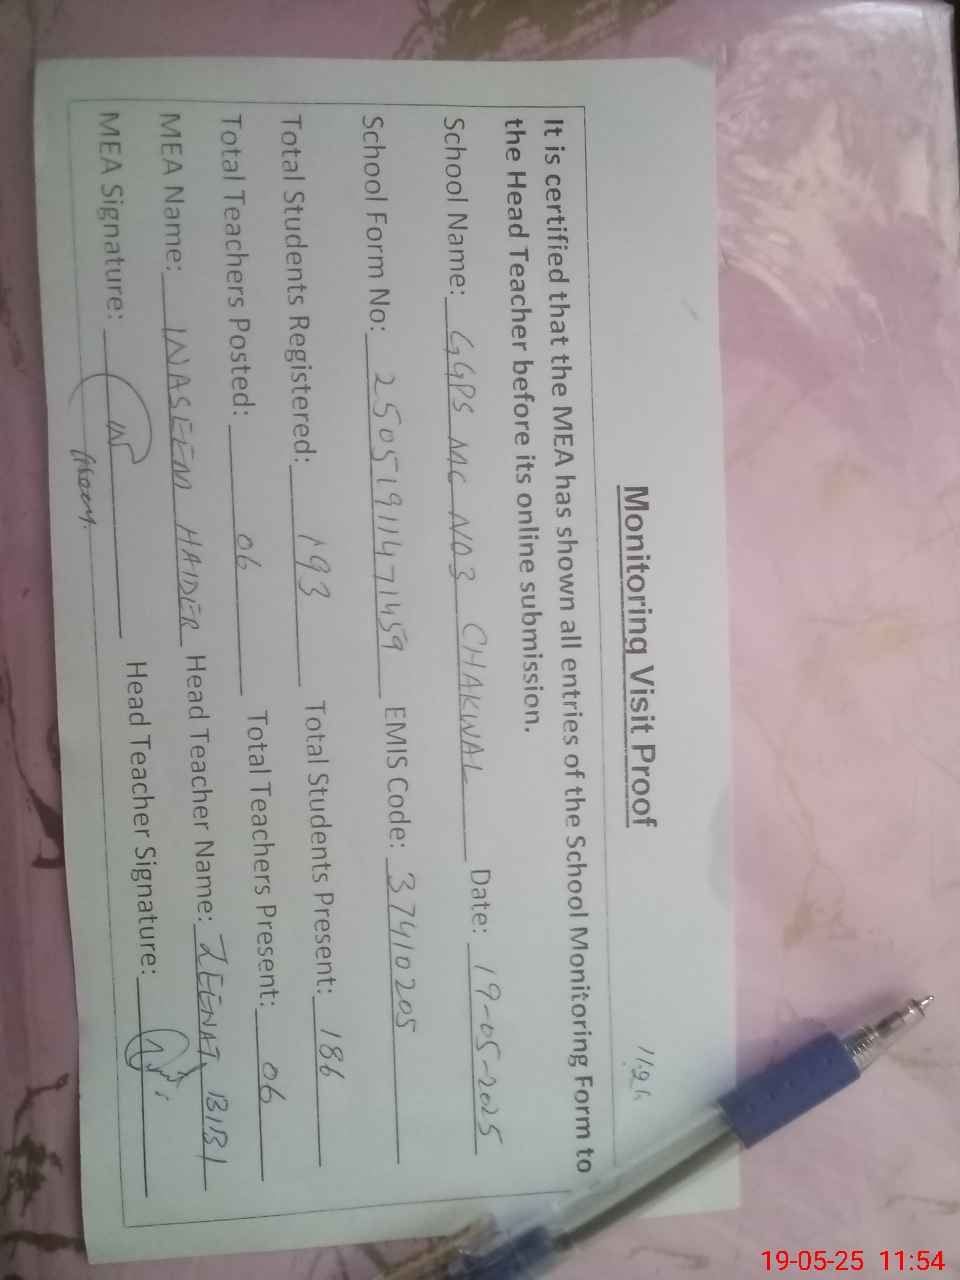 Monitoring Visit Proof
It is certified that the MEA has shown all entries of the School Monitoring Form to
the Head Teacher before its online submission.
School Name: GGPS MC NO3 CHAKWAL Date: 19-05-2025
School Form No: 25051911471459 EMIS Code: 37410205
Total Students Registered: 193 Total Students Present: 186
Total Teachers Posted: 06 Total Teachers Present: 06
MEA Name: WASEEM HAIDER Head Teacher Name: ZEENAT BIBI
MEA Signature: Head Teacher Signature:
19-05-25 11:54